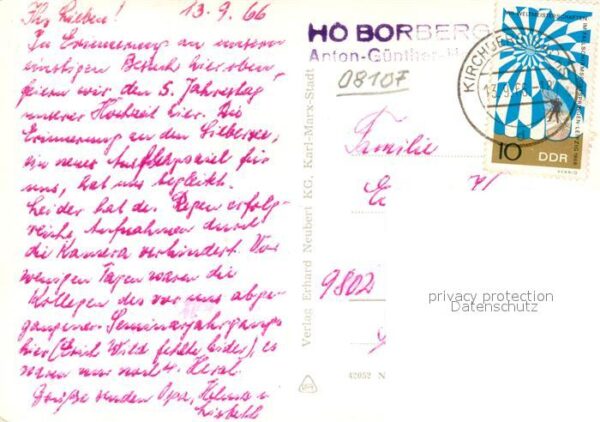 Ihr Lieben! 13.9.66
In Erinnerung an unseren
einstigen Besuch hier oben,
feiern wir den 5. Jahrestag
unserer Hochzeit hier. Die
Erinnerung an den
ein neuer für
uns, hat uns begleitet.
Leider hat der Regen erfolg-
reiche Aufnahmen durch
die Kamera verhindert. Vor
wenigen Tagen waren die
Kollegen des vor uns abge-
gangenen Seminarjahrgangs
hier (Erich Wild fehlte leider), es
waren nur noch 4. Herzl.
Grüße senden Opa, Helmut u.
Lisbeth
HO BORBERG
Anton-Günther-H
08107
Familie
9802
Verlag Erhard Neubert KG. Karl-Marx-Stadt
42052 N
KIRCHBERG
13.9.66
10 DDR
privacy protection
Datenschutz